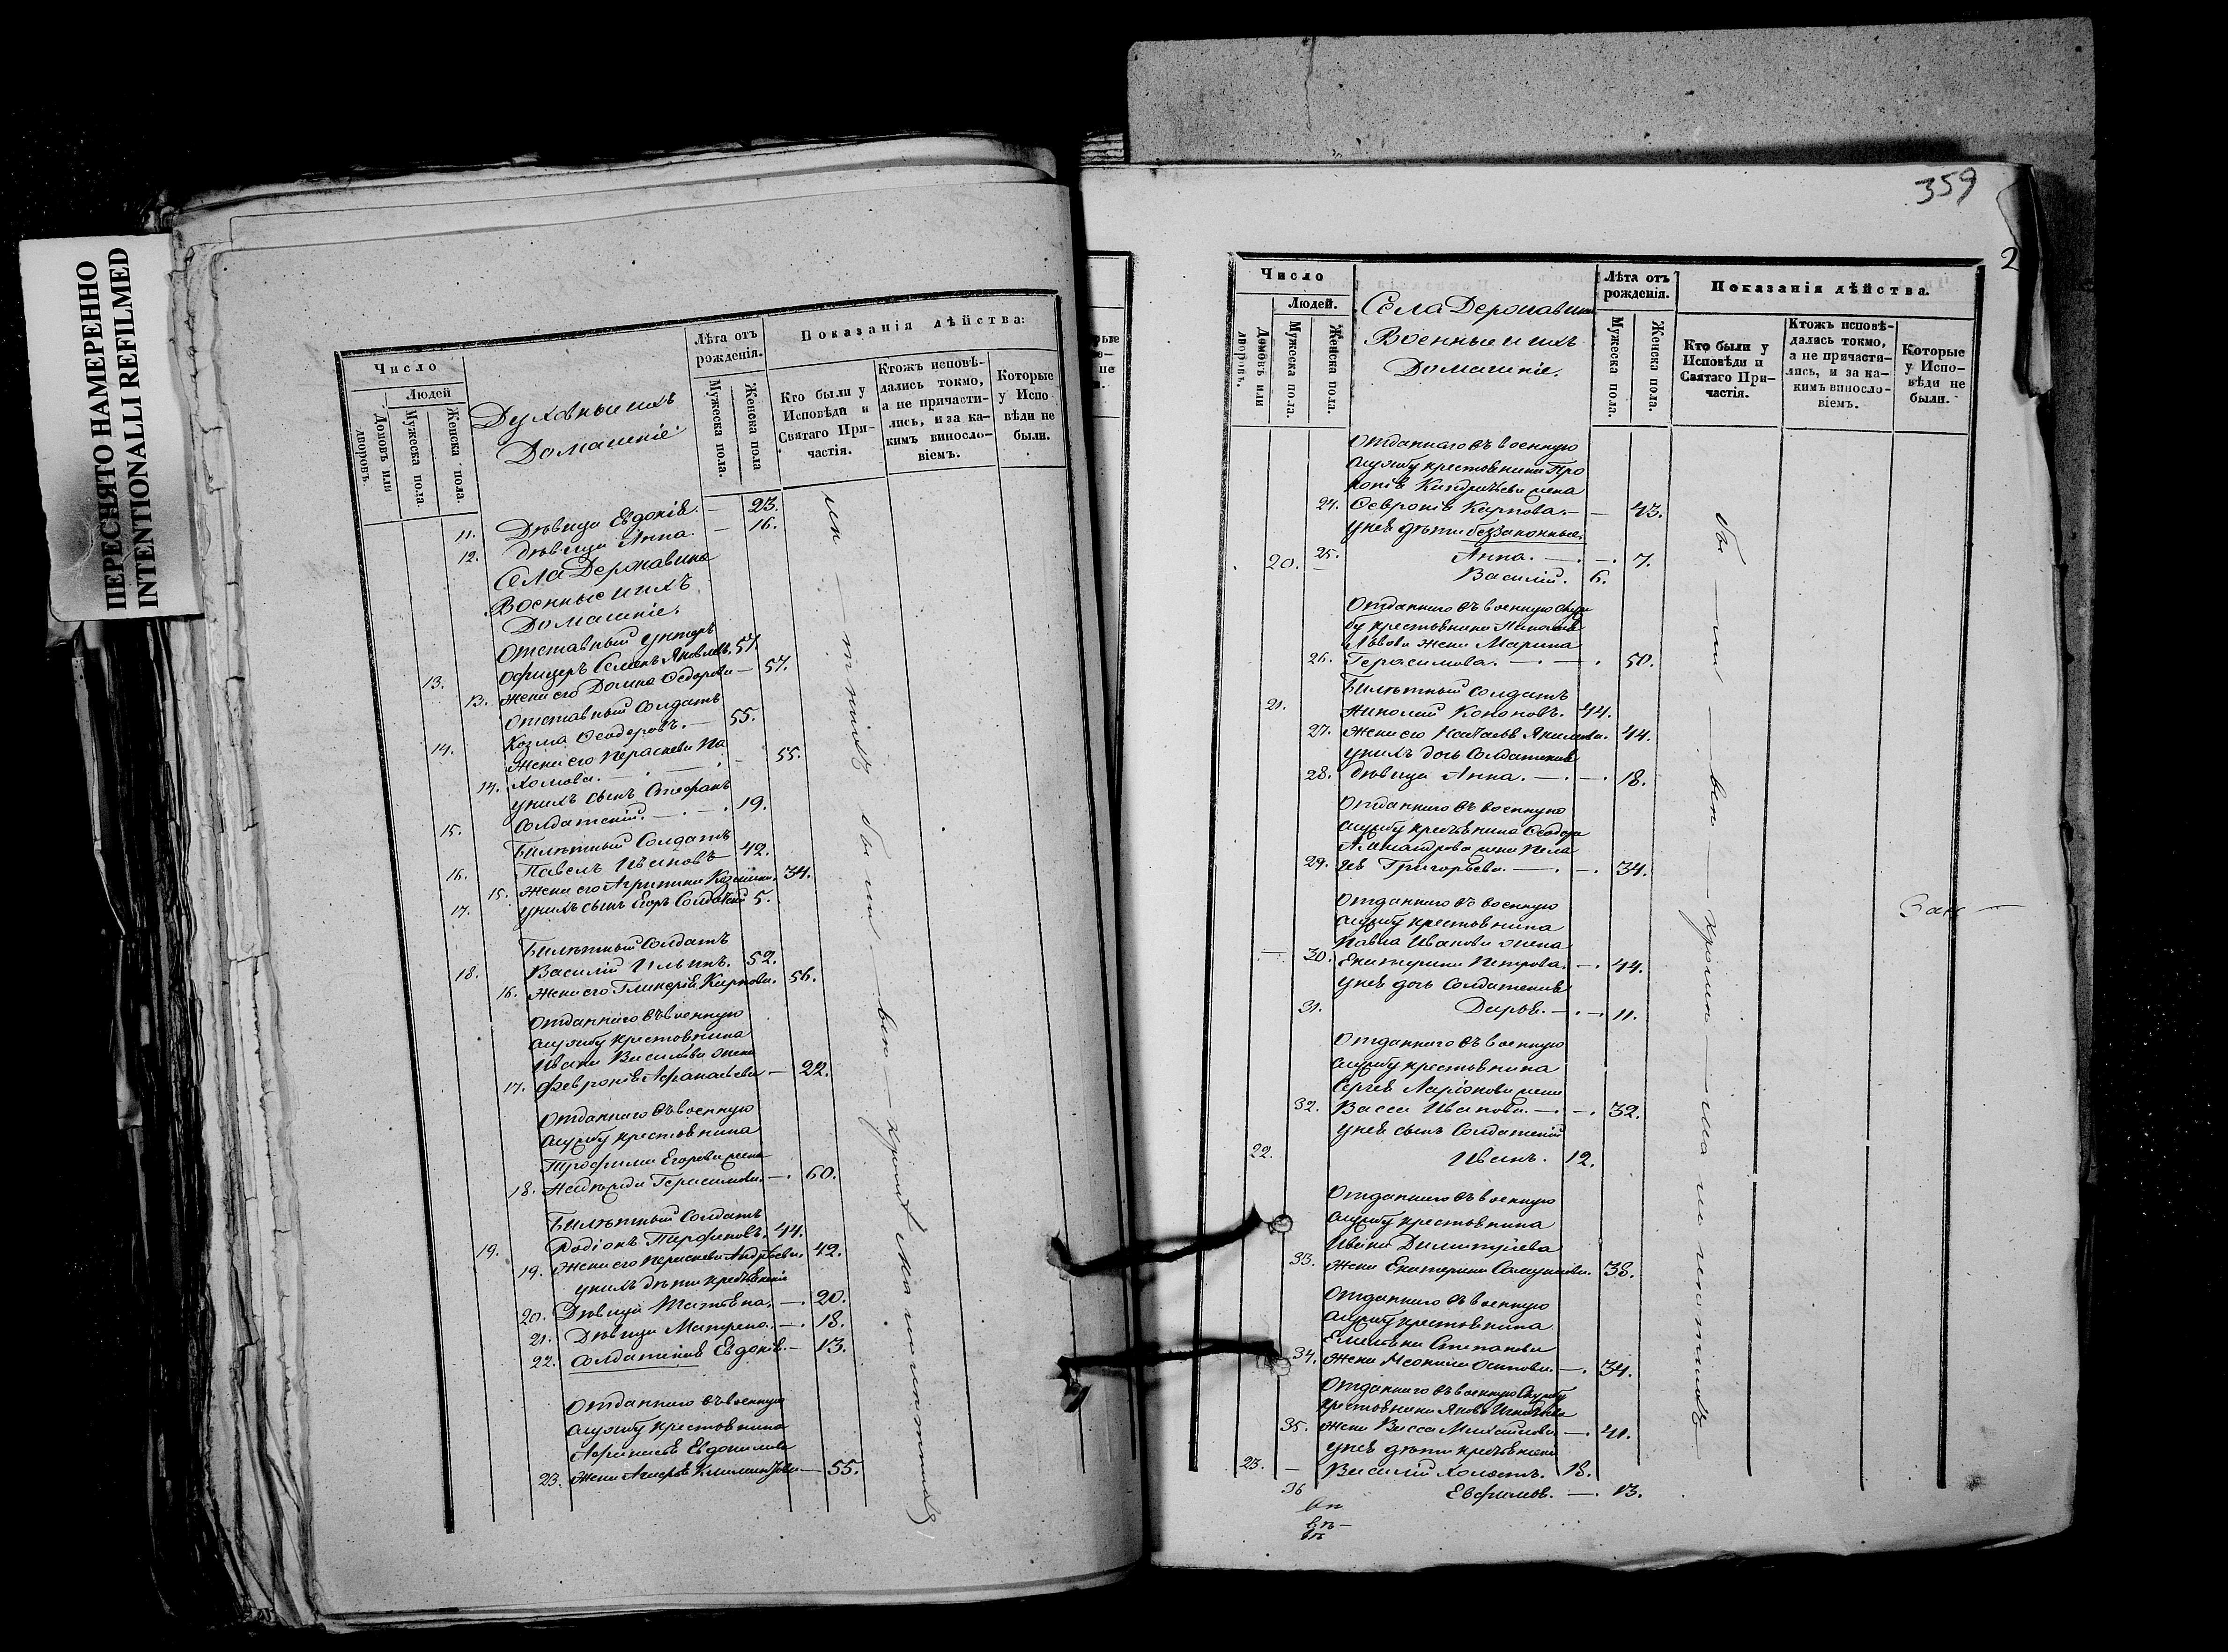 ПЕРЕСНЯТО НАМЕРЕННО
INTENTIONALLI REFILMED
Число
Людей
Домовъ или дворовъ.
Мужеска пола.
Женска пола.
Духовные ихъ
Домашніе
Лѣта отъ рожденія.
Мужеска пола.
Женска пола
Показанія дѣйства:
Кто были у Исповѣди и Святаго Причастія.
Ктожъ исповѣдались токмо, а не причастились, и за какимъ винословіемъ.
Которые у Исповѣди не были.
11. Дѣвица Евдокія. — 23.
12. дѣвица Анна. — 16.
Села Державина
Военные и ихъ
Домашніе.
Отставный унтеръ
13. офицеръ Семенъ Яковлевъ. 57.
13. жена его Домна Ѳедорова — 57.
Отставный Солдатъ
14. Козма Ѳеодоровъ. — 55.
жена его Параскева Па
14. хомова. — 55.
у нихъ сынъ Стефанъ
15. Солдатскій. — 19.
Билѣтный Солдатъ
16. Павелъ Ивановъ 42.
15. жена его Агрипина Козмина. 34.
17. у нихъ сынъ Егоръ Солдатскій 5.
Билѣтный Солдатъ
18. Василій Ильинъ. 52.
16. жена его Гликерія Карпова. 56.
Отданнаго въ военную
службу крестьянина
Ивана Васильева жена
17. Февронія Афанасьева — 22.
Отданнаго въ военную
службу крестьянина
Трофима Егорова жена
18. Надежда Герасимова. — 60.
Билѣтный Солдатъ
19. Родіонъ Парфеновъ. 44.
19. жена его Параскева Андреева. 42.
у нихъ дѣти крестьянскіе
20. Дѣвица Татьяна. — 20.
21. Дѣвица Матрена. — 18.
22. Солдатская Евдокія. — 13.
Отданнаго въ военную
службу крестьянина
Афанасья Евдокимова
23. жена Агафья Климентова — 55.
359
2
Число
Людей.
Домовъ или дворовъ.
Мужеска пола.
Женска пола.
Села Державина
Военные и ихъ
Домашніе.
Лѣта отъ рожденія.
Мужеска пола.
Женска пола.
Показанія дѣйства.
Кто были у Исповѣди и Святаго Причастія.
Ктожъ исповѣдались токмо, а не причастились, и за какимъ винословіемъ.
Которые у Исповѣди не были.
Отданнаго въ военную
службу крестьянина Про
копія Кондратьева жена
24. Февронія Карпова. — 43.
у нея дѣти беззаконные.
25. Анна. — 7.
20. Василій. 6.
Отданнаго въ военную служ
бу крестьянина
Львова жена Марина
26. Герасимова. — 50.
Билѣтный Солдатъ
21. Николай Кононовъ. 44.
27. жена его Наталья Якимова. 44.
у нихъ дочь Солдатская
28. дѣвица Анна. — 18.
Отданнаго въ военную
службу крестьянина Ѳеодора
Александрова жена Пела
29. гея Григорьева. — 34.
Отданнаго въ военную
службу крестьянина
Павла Иванова жена
30. Екатерина Петрова. — 44.
у нея дочь Солдатская
31. Дарья. — 11.
Отданнаго въ военную
службу крестьянина
Сергея Ларіонова жена
32. Васса Иванова. — 32.
у нея сынъ Солдатскій
22. Иванъ. 12.
Отданнаго въ военную
службу крестьянина
Ивана Димитріева
33. жена Екатерина 38.
Отданнаго въ военную
службу крестьянина
Емельяна Степанова
34. жена Неонила Осипова. — 34.
Отданнаго въ военную Службу
крестьянина Якова Игнатьева
35. жена Васса Михайлова — 41.
у нея дѣти крестьянскіе
23. — Василій холостъ. 18.
36 Евфимья. — 13.